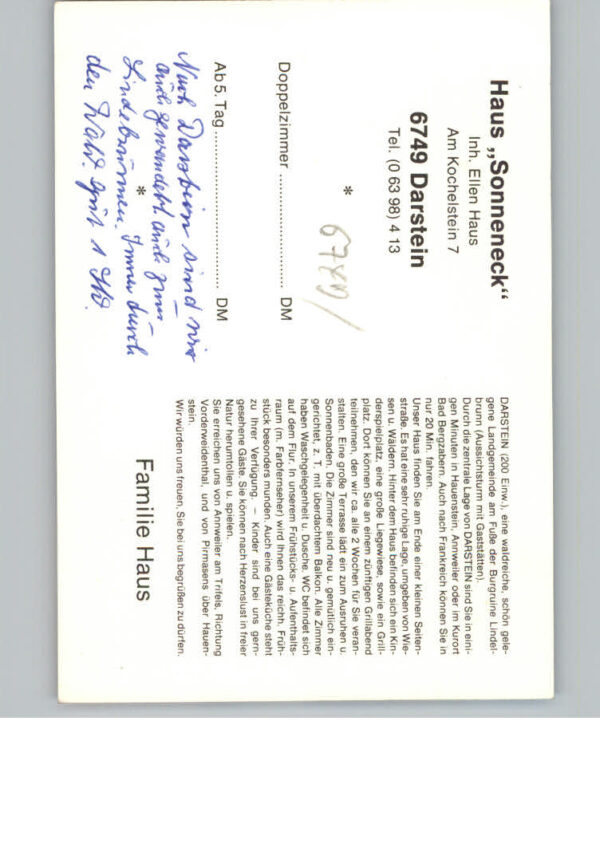 Haus „Sonneneck“
Inh. Ellen Haus
Am Kochelstein 7
6749 Darstein
Tel. (0 63 98) 4 13
*
Doppelzimmer ........................ DM
Ab 5. Tag ................................ DM
*
Nach Darstein sind wir
auch gewandert auch zum
Lindelbrunnen. Immer durch
den Wald. Gut 1 Std.
DARSTEIN (200 Einw.), eine waldreiche, schön gele-
gene Landgemeinde am Fuße der Burgruine Lindel-
brunn (Aussichtsturm mit Gaststätten).
Durch die zentrale Lage von DARSTEIN sind Sie in eini-
gen Minuten in Hauenstein, Annweiler oder im Kurort
Bad Bergzabern. Auch nach Frankreich können Sie in
nur 20 Min. fahren.
Unser Haus finden Sie am Ende einer kleinen Seiten-
straße. Es hat eine sehr ruhige Lage, umgeben von Wie-
sen u. Wäldern. Hinter dem Haus befinden sich ein Kin-
derspielplatz, eine große Liegewiese sowie ein Grill-
platz. Dort können Sie an einem zünftigen Grillabend
teilnehmen, den wir ca. alle 2 Wochen für Sie veran-
stalten. Eine große Terrasse lädt ein zum Ausruhen u.
Sonnenbaden. Die Zimmer sind neu u. gemütlich ein-
gerichtet, z. T. mit überdachtem Balkon. Alle Zimmer
haben Waschgelegenheit u. Dusche, WC befindet sich
auf dem Flur. In unserem Frühstücks- u. Aufenthalts-
raum (m. Farbfernseher) wird Ihnen das reichh. Früh-
stück besonders munden. Auch eine Gästeküche steht
zu Ihrer Verfügung. – Kinder sind bei uns gern-
gesehene Gäste. Sie können nach Herzenslust in freier
Natur herumtollen u. spielen.
Sie erreichen uns von Annweiler am Trifels, Richtung
Vorderweidenthal, und von Pirmasens über Hauen-
stein.
Wir würden uns freuen, Sie bei uns begrüßen zu dürfen.
Familie Haus